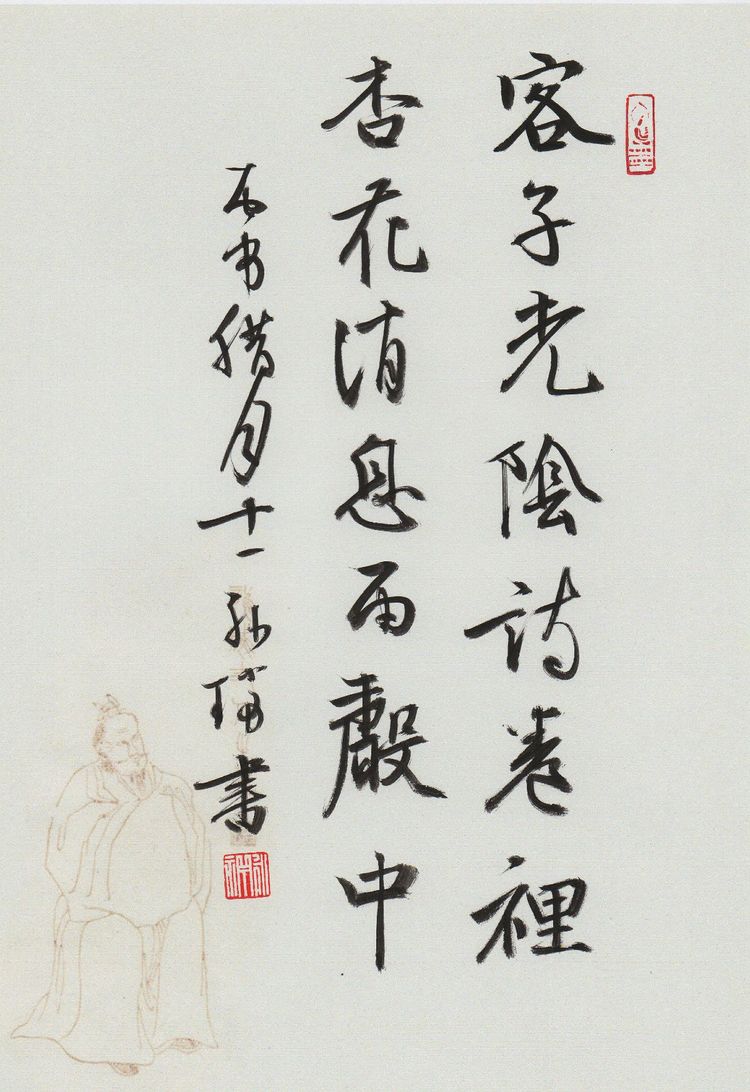 客子光陰詩卷裡
杏花消息雨聲中
丙腊月十一孙書